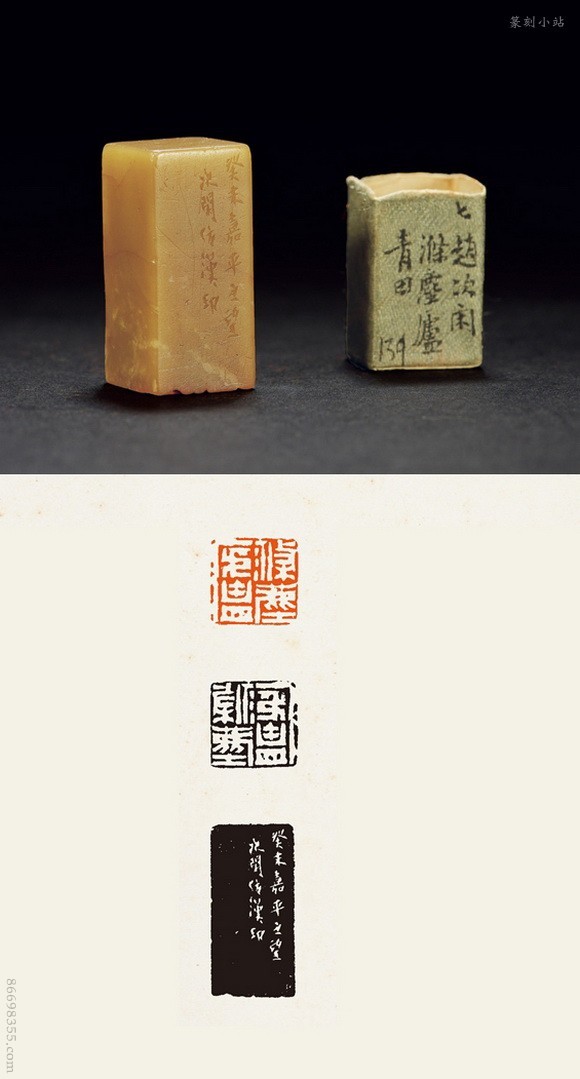 篆刻小站
癸未嘉平之望
次閑仿漢印
七趙次閑
滌塵廬
青田
139
滌塵
癸未嘉平之望
次閑仿漢印
86698355.com